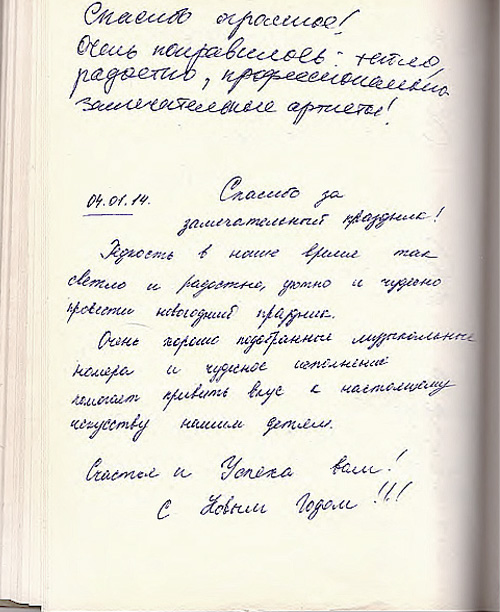 Спасибо огромное!
Очень понравилось: тепло,
радостно, профессионально
замечательные артисты!
04.01.14. Спасибо за
замечательный праздник!
Редкость в наше время так
светло и радостно, уютно и чудесно
провести новогодний праздник.
Очень хорошо подобранные музыкальные
номера и чудесное исполнение
помогает привить вкус к настоящему
искусству нашим детям.
Счастья и Успеха вам!
С Новым Годом!!!